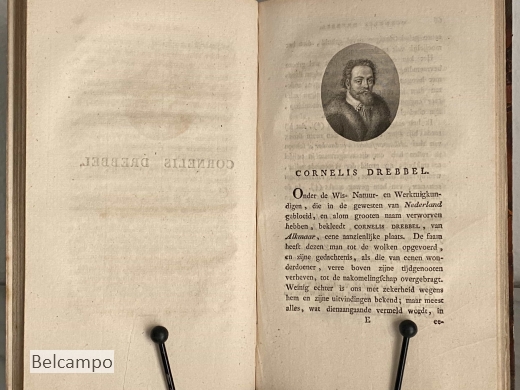 CORNELIS DREBBEL.
CORNELIS DREBBEL.
Onder de Wis- Natuur- en Werktuigkun-
digen, die in de gewesten van Nederland
gebloeid, en alom grooten naam verworven
hebben, bekleedt CORNELIS DREBBEL, van
Alkmaar, eene aanzienlijke plaats. De faam
heeft dezen man tot de wolken opgevoerd,
en zijne gedachtenis, als die van eenen won-
derdoener, verre boven zijne tijdgenooten
verheven, tot de nakomelingschap overgebragt.
Weinig echter is ons met zekerheid wegens
hem en zijne uitvindingen bekend; maar meest
alles, wat dienaangaande vermeld wordt, is
E
ee-
Belcampo